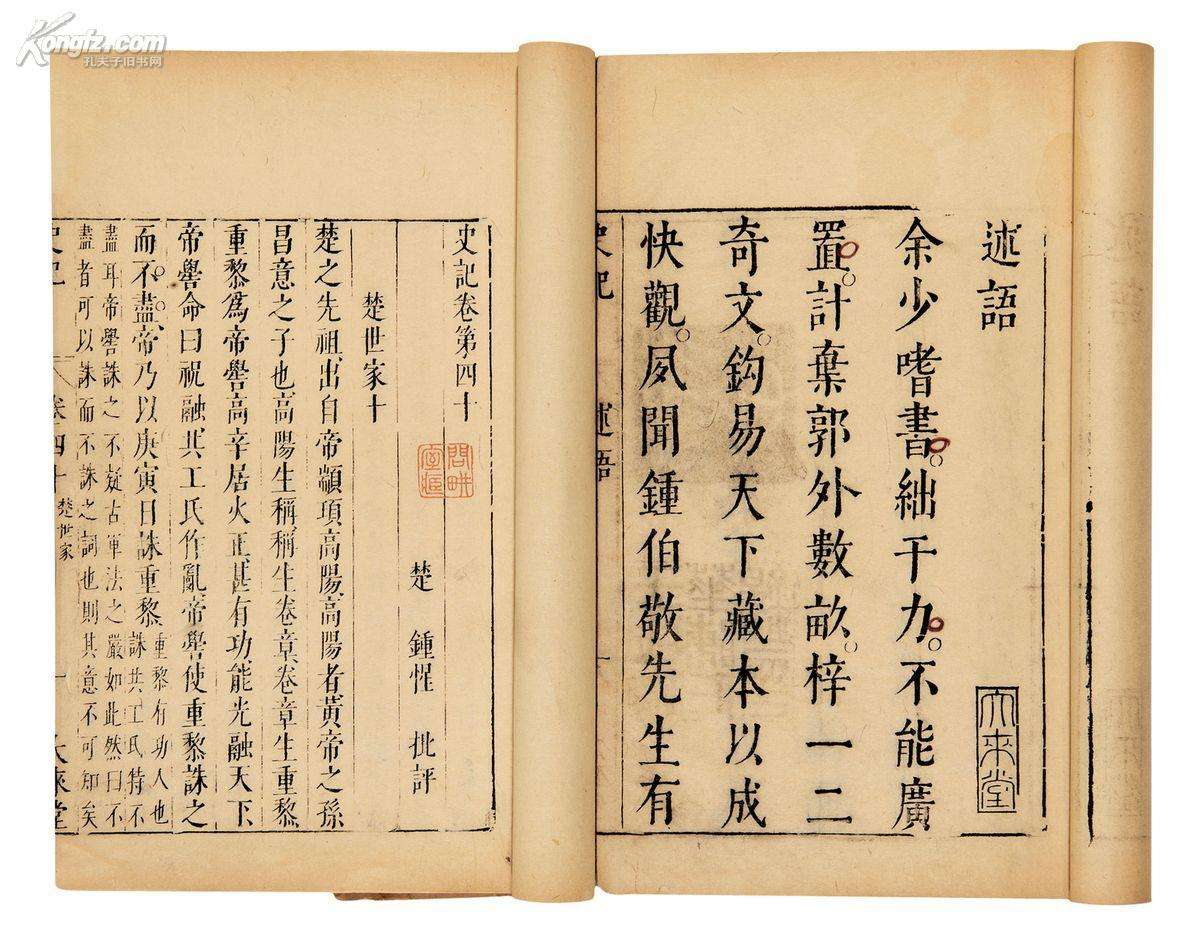 Kongfz.com
孔夫子旧书网
述語
大來堂
余少嗜書絀于力不能廣
置計棄郭外數畝梓一二
奇文鈎易天下藏本以成
快觀夙聞鍾伯敬先生有
史記 述語 一
史記卷第四十
楚 鍾惺 批評
楚世家十
楚之先祖出自帝顓頊高陽高陽者黃帝之孫
昌意之子也高陽生稱稱生卷章卷章生重黎
重黎爲帝嚳高辛居火正甚有功能光融天下
帝嚳命曰祝融共工氏作亂帝嚳使重黎誅之
而不盡帝乃以庚寅日誅重黎
重黎有功人也
誅共工氏特不
盡耳帝嚳誅之不疑古軍法之嚴如此然曰不
盡者可以誅而不誅之詞也則其意不可知矣
史記 卷四十 楚世家 一 大來堂